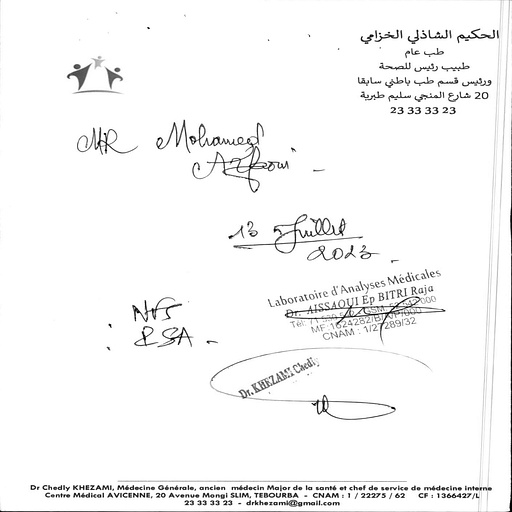 الحكيم الشاذلي الخزامي
طب عام
طبيب رئيس للصحة
ورئيس قسم طب باطني سابقا
20 شارع المنجي سليم طبربة
23 33 33 23
MR Mohamed
13 Juillet
2023
NFS
PSA
Laboratoire d'Analyses Médicales
Dr. AISSAOUI Ep BITRI Raja
CNAM : 1/27289/32
Dr. KHEZAMI Chedly
Dr Chedly KHEZAMI, Médecine Générale, ancien médecin Major de la santé et chef de service de médecine interne
Centre Médical AVICENNE, 20 Avenue Mongi SLIM, TEBOURBA - CNAM : 1 / 22275 / 62 CF : 1366427/L
23 33 33 23 - drkhezami@gmail.com